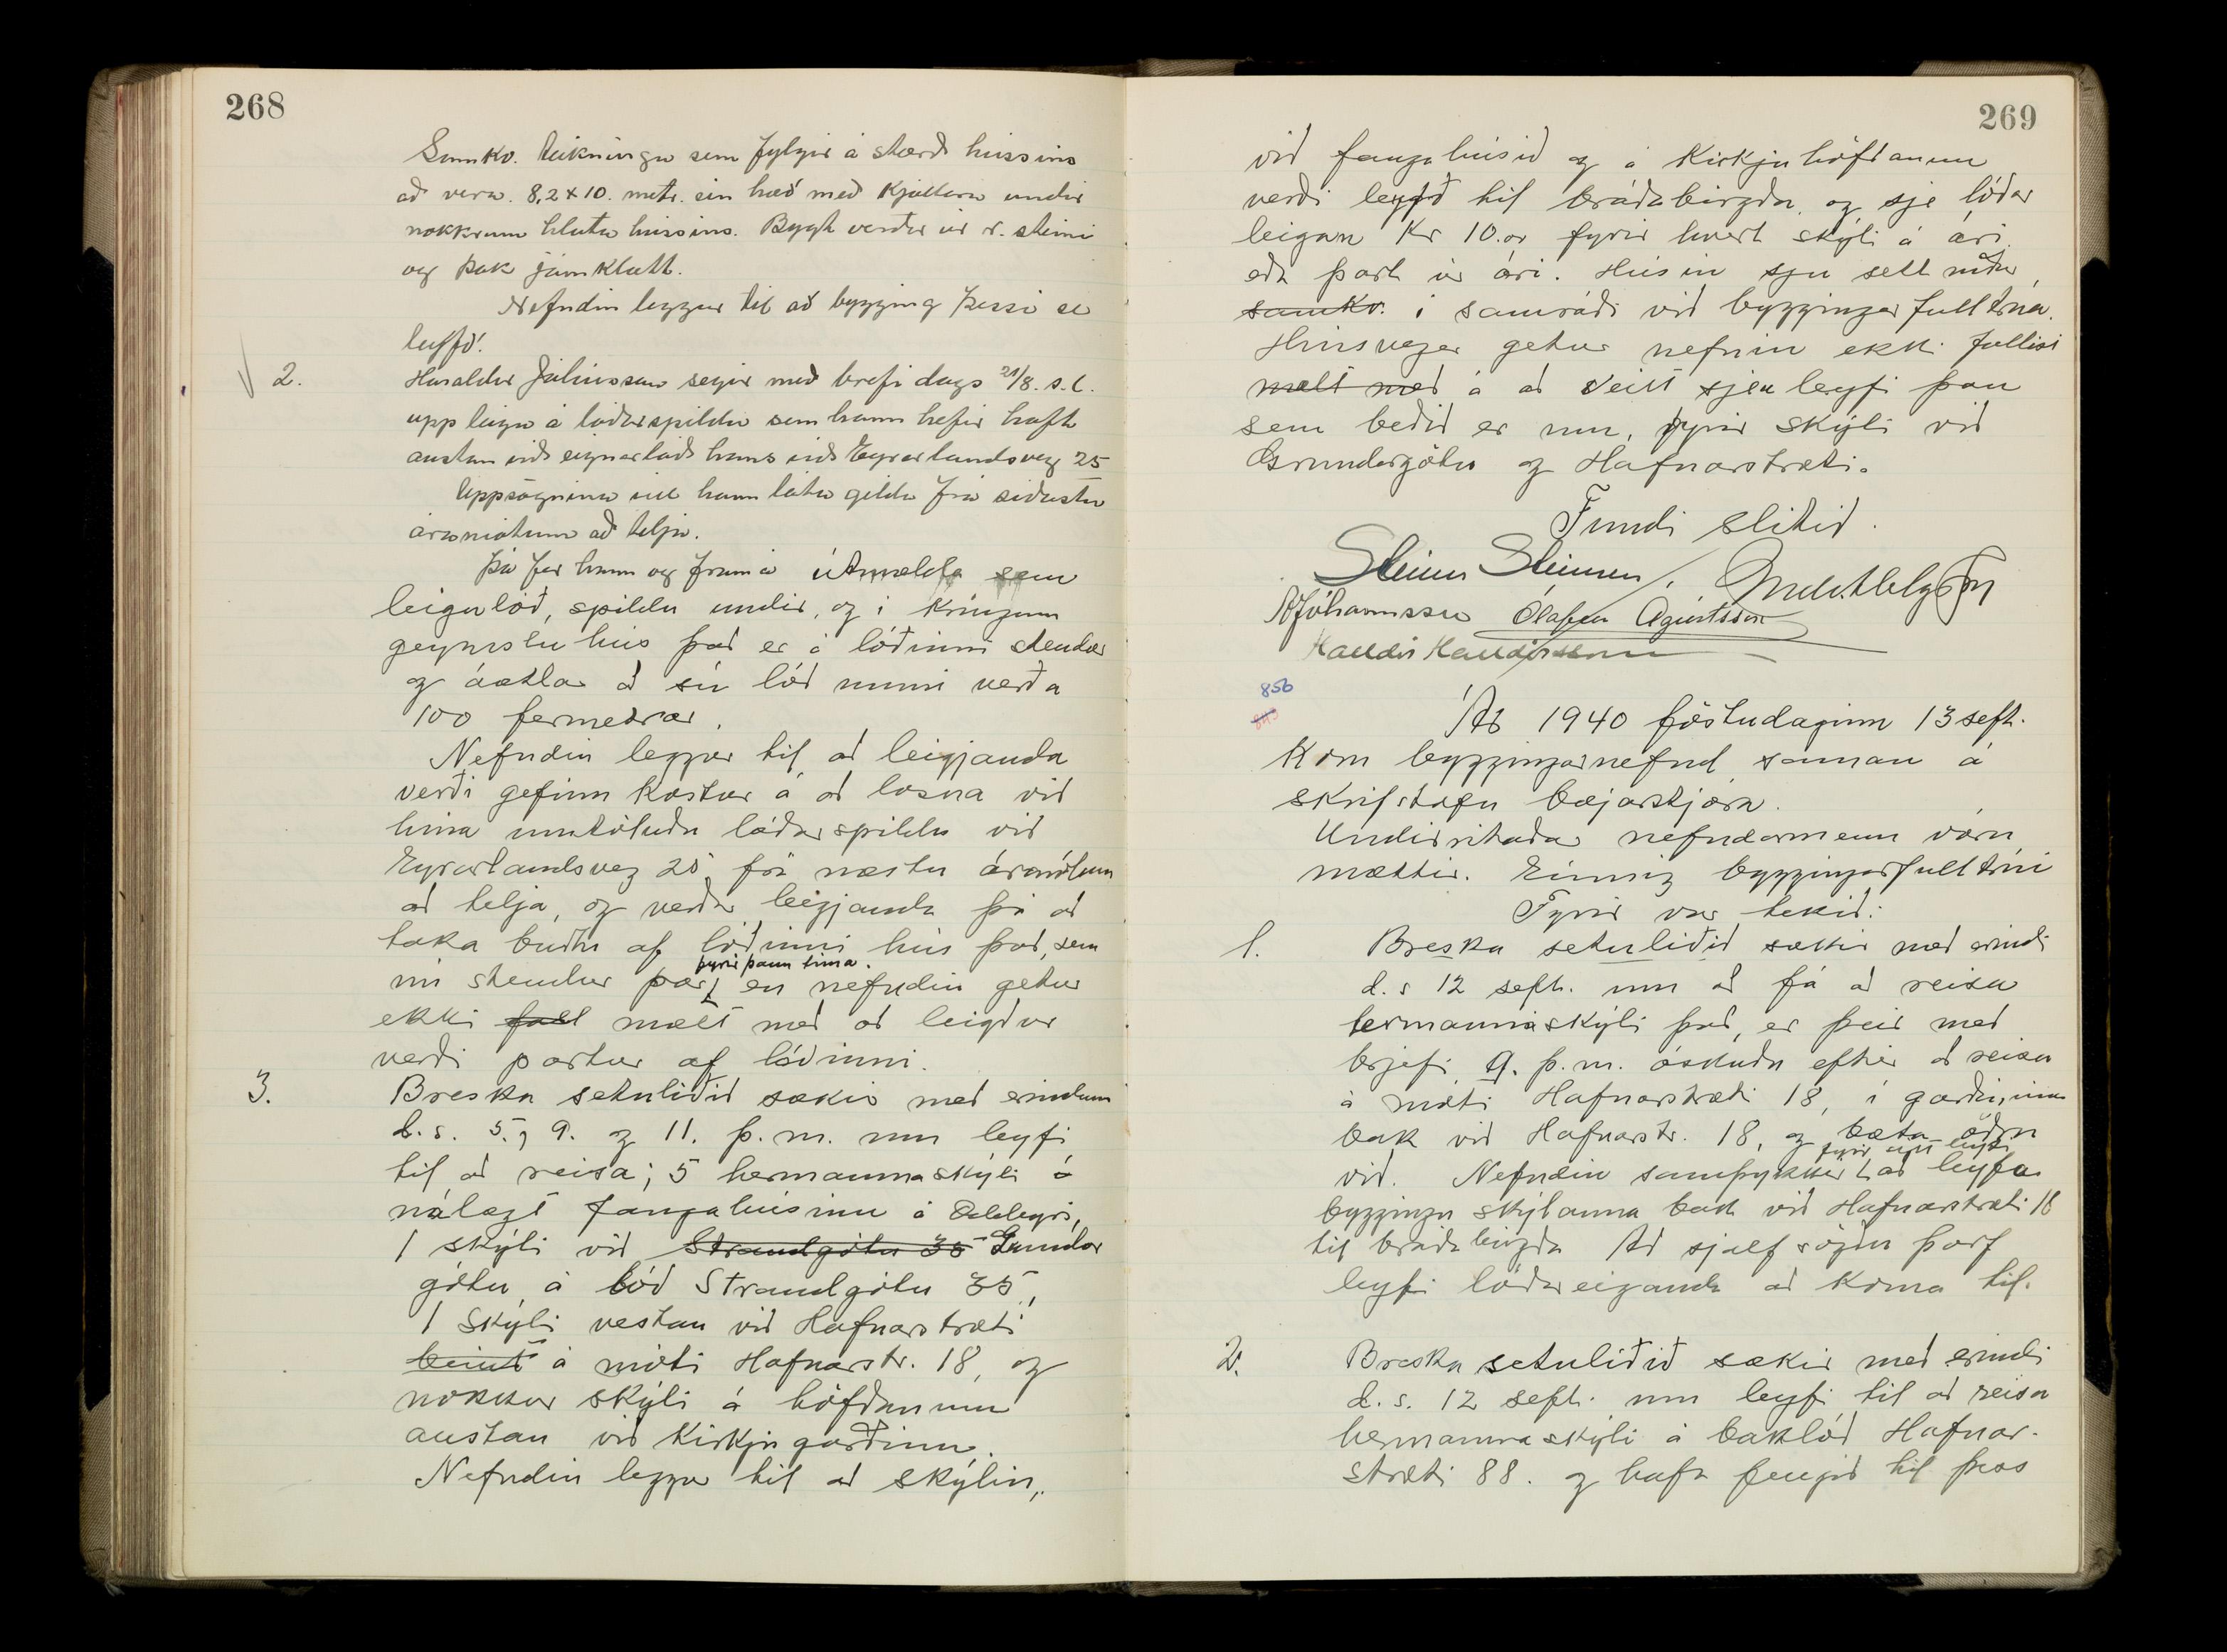 268
Samkv. teikningu sem fylgir á stærð hússins
að vera. 8,2 x 10. metr. ein hæð með kjallara undir
nokkrum hluta hússins. Bygt verður úr r. steini
og þak járnklætt.
Nefndin leggur til að bygging þessi sé
leyfð.
2. Haraldur Júlíusson segir með brefi dags 21/8. s.l.
upp leigu á lóðarspildu sem hann hefir haft
austan við eignarlóð hans við Eyrarlandsveg 25
Uppsögnina vill hann láta gilda frá síðustu
áramótum að telja.
Þá fer hann og fram á útmælda sem
leigulóð, spildu undir, og í kringum
geymsluhús það er á lóðinni stendur
og áætlar að sú lóð muni verða
100 fermetrar.
Nefndin leggur til að leigjanda
verði gefinn kostur á að losna við
hina umtöluðu lóðarspildu við
Eyrarlandsveg 25, frá næstu áramótum
að telja, og verður leigjandi þá að
taka burtu af lóðinni hús það, sem
fyrir þann tíma.
nú stendur þar, en nefndin getur
ekki fall mælt með að leigður
verði partur af lóðinni.
3. Breska setuliðið sækir með erindum
d.s. 5., 9. og 11. þ.m. um leyfi
til að reisa; 5 hermannaskýli á
nálægt fangahúsinu á Oddeyri,
1 skýli við Strandgötu 35 Grundar
götu á lóð Strandgötu 35,
1 skýli vestan við Hafnarstræti
beint á móti Hafnarstr. 18, og
nokkur skýli á höfðanum
austan við Kirkjugarðinn.
Nefndin leggur til að skýlin,
269
við fangahúsið og á Kirkjuhöfðanum
verði leyfð til bráðabirgða og sje lóðar
leigan Kr 10.oo fyrir hvert skýli á ári
eða part úr ári. Húsin sju sett niður
samkv. í samráði við byggingarfulltrúa.
Hinsvegar getur nefnin ekki fallist
mælt með á að veitt sjeu leyfi þau
sem beðið er um, fyrir skýli við
Grundargötu og Hafnarstræti.
Fundi slitið.
Steinn Steinsen,
Jóhannsson Ólafur Ágústsson
Halldór Halldórsson
856
Ár 1940 föstudaginn 13 sept.
Kom byggingarnefnd saman á
skrifstofu bæjarstjóra.
Undirritaðar nefndarmenn vóru
mættir. Einnig byggingarfulltrúi
Fyrir var tekið:
1. Breska setuliðið sækir með erindi
d.s 12 sept. um að fá að reisa
hermannaskýli það, er þeir með
brjefi 9. þ.m. óskuðu eftir að reisa
á móti Hafnarstræti 18, í garðinum
bak við Hafnarstr. 18, og bæta öðru
fyrir sitt leyti
við. Nefndin samþykkir að leyfa
byggingu skýlanna bak við Hafnarstræti 18
til bráðabirgða Að sjálfsögðu þarf
leyfi lóðareiganda að koma til.
2. Breska setuliðið sækir með erindi
d.s. 12 sept. um leyfi til að reisa
hermannaskýli á baklóð Hafnar-
stræti 88. og hafa fengið til þess